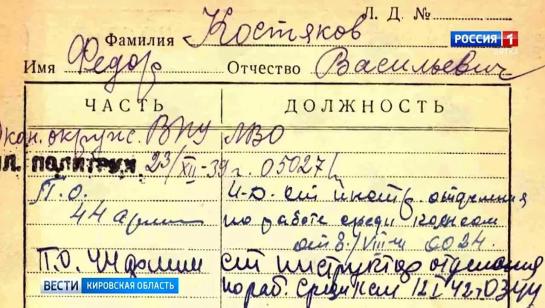 Л. Д. №
Фамилия Костяков
РОССИЯ 1
Имя Федор Отчество Васильевич
ЧАСТЬ ДОЛЖНОСТЬ
окон. окружн. ВПУ ЛВО
мл. ПОЛИТРУК 23/XII-39 г. 05027/
П.О. И-д. ст. инстр. отделения
44 армии по работе среди
от 8/VIII-41 0024.
П.О. 44 армии ст инструктор отделения
по раб. среди 12/I 42 г. 0344
ВЕСТИ КИРОВСКАЯ ОБЛАСТЬ